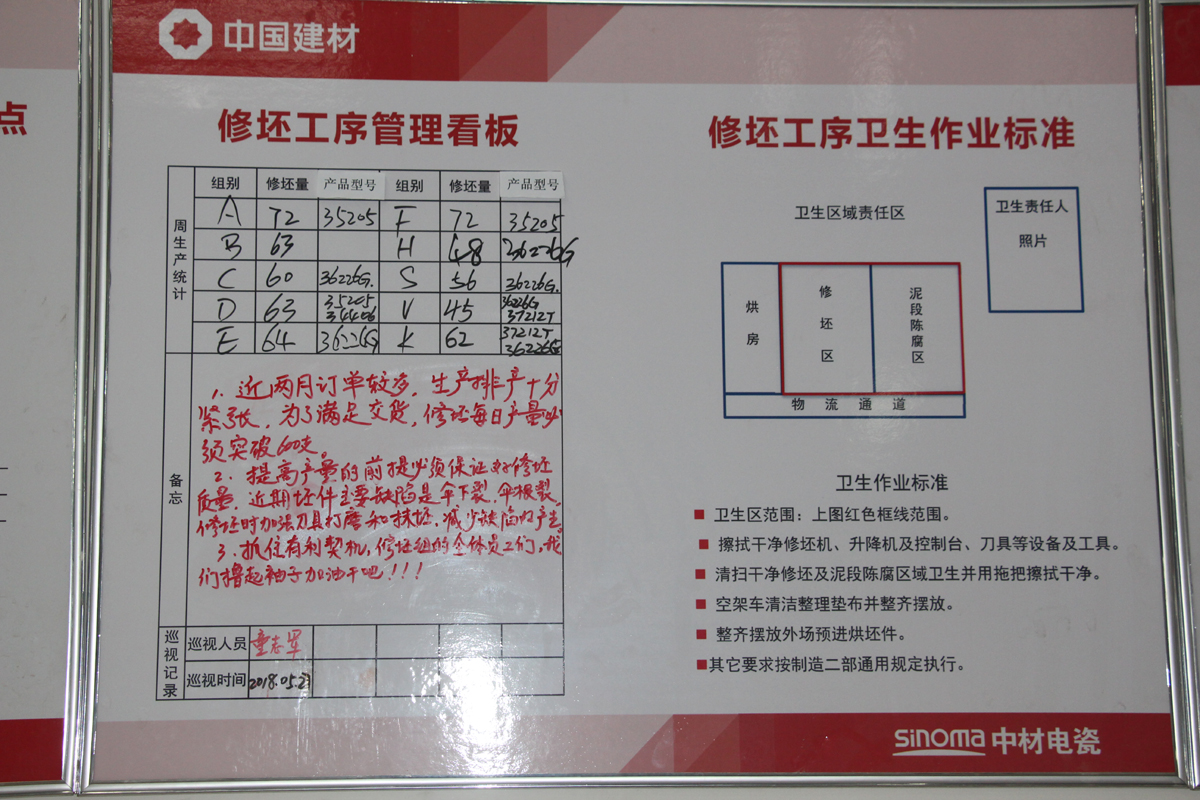 点
中国建材
修坯工序管理看板
周生产统计
组别 修坯量 产品型号 组别 修坯量 产品型号
A 72 35205 F 72 35205
B 63 H 48 36226G
C 60 36226G. S 56 36226G.
D 63 35205 34406 V 45 36226G 37212T
E 64 36226G K 62 37212T 36226G
备忘
1. 近两月订单较多，生产排产十分
紧张，为了满足交货，修坯每日产量必
须突破600支。
2. 提高产量的前提必须保证好修坯
质量，近期坯件主要缺陷是伞下裂、伞根裂。
修坯时加强刀具打磨和抹坯，减少缺陷的产生。
3. 抓住有利契机，修坯组的全体员工们，我
们撸起袖子加油干吧！！！
巡视记录
巡视人员 童志军
巡视时间 2018.05.27
修坯工序卫生作业标准
卫生区域责任区
卫生责任人
照片
烘房
修坯区
泥段陈腐区
物流通道
卫生作业标准
卫生区范围：上图红色框线范围。
擦拭干净修坯机、升降机及控制台、刀具等设备及工具。
清扫干净修坯及泥段陈腐区域卫生并用拖把擦拭干净。
空架车清洁整理垫布并整齐摆放。
整齐摆放外场预进烘坯件。
其它要求按制造二部通用规定执行。
sinoma 中材电瓷